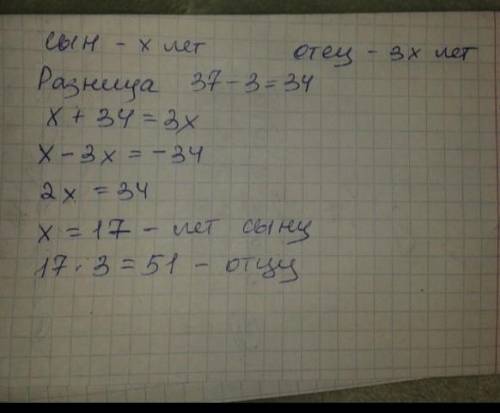 сын - х лет отец - 3х лет
Разница 37-3=34
х + 34 = 3х
х - 3х = -34
2х = 34
х = 17 - лет сыну
17 · 3 = 51 - отцу